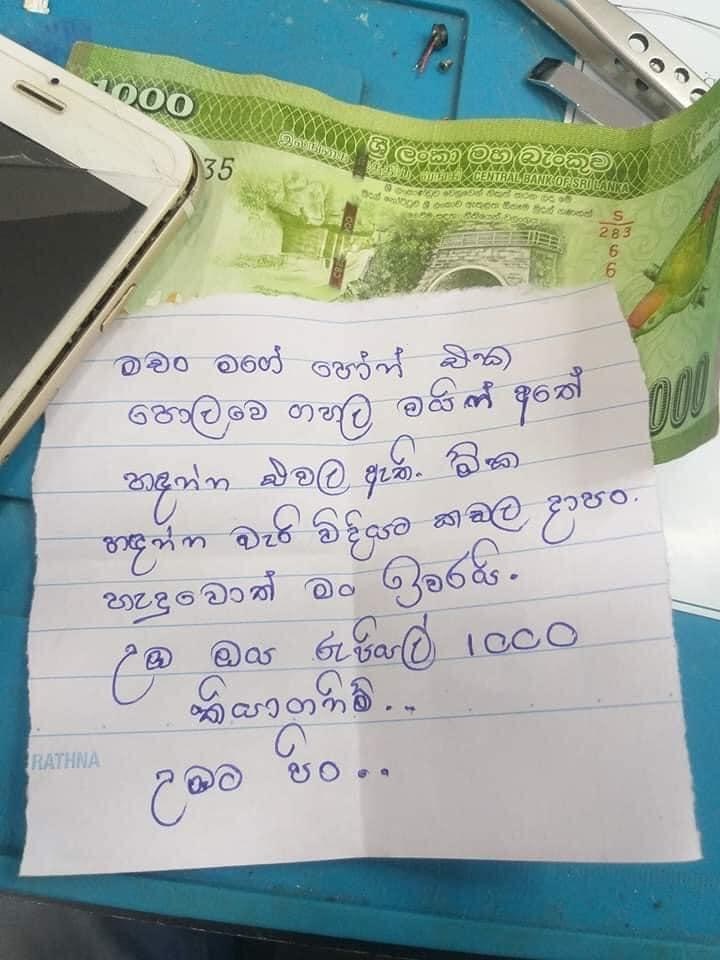 1000
ශ්‍රී ලංකා මහ බැංකුව
CENTRAL BANK OF SRI LANKA
35
S
283
6
6
000
මචං මගේ ෆෝන් එක
පොලවෙ ගහල වයිෆ් අතේ
හදන්න එවල ඇති. ඕක
හදන්න බැරි විදියට කඩල දාපං.
හැදුවොත් මං ඉවරයි.
උඹ ඔය රුපියල් 1000
තියාගනිම්..
RATHNA
උඹට පිං..